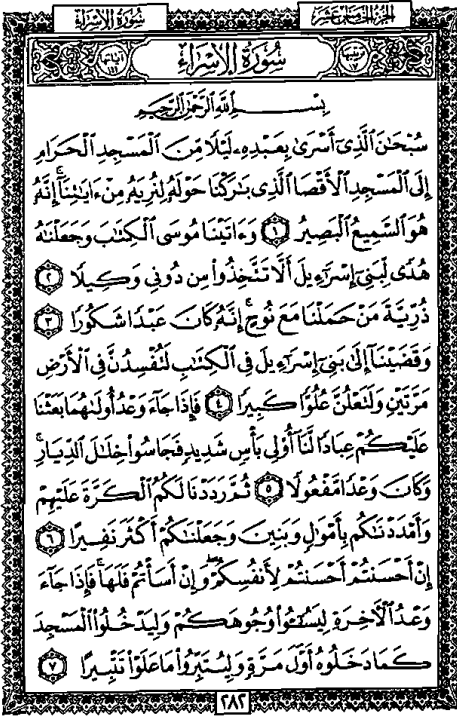 سُورَةُ الإِسْرَاءِ الجُزْءُ الخَامِسَ عَشَرَ
سُورَةُ الإِسْرَاءِ
بِسْمِ اللَّهِ الرَّحْمَٰنِ الرَّحِيمِ
سُبْحَٰنَ ٱلَّذِىٓ أَسْرَىٰ بِعَبْدِهِۦ لَيْلًا مِّنَ ٱلْمَسْجِدِ ٱلْحَرَامِ
إِلَى ٱلْمَسْجِدِ ٱلْأَقْصَا ٱلَّذِى بَٰرَكْنَا حَوْلَهُۥ لِنُرِيَهُۥ مِنْ ءَايَٰتِنَآ ۚ إِنَّهُۥ
هُوَ ٱلسَّمِيعُ ٱلْبَصِيرُ ١ وَءَاتَيْنَا مُوسَى ٱلْكِتَٰبَ وَجَعَلْنَٰهُ
هُدًى لِّبَنِىٓ إِسْرَٰٓءِيلَ أَلَّا تَتَّخِذُوا۟ مِن دُونِى وَكِيلًا ٢
ذُرِّيَّةَ مَنْ حَمَلْنَا مَعَ نُوحٍ ۚ إِنَّهُۥ كَانَ عَبْدًا شَكُورًا ٣
وَقَضَيْنَآ إِلَىٰ بَنِىٓ إِسْرَٰٓءِيلَ فِى ٱلْكِتَٰبِ لَتُفْسِدُنَّ فِى ٱلْأَرْضِ
مَرَّتَيْنِ وَلَتَعْلُنَّ عُلُوًّا كَبِيرًا ٤ فَإِذَا جَآءَ وَعْدُ أُولَىٰهُمَا بَعَثْنَا
عَلَيْكُمْ عِبَادًا لَّنَآ أُو۟لِى بَأْسٍ شَدِيدٍ فَجَاسُوا۟ خِلَٰلَ ٱلدِّيَارِ ۚ
وَكَانَ وَعْدًا مَّفْعُولًا ٥ ثُمَّ رَدَدْنَا لَكُمُ ٱلْكَرَّةَ عَلَيْهِمْ
وَأَمْدَدْنَٰكُم بِأَمْوَٰلٍ وَبَنِينَ وَجَعَلْنَٰكُمْ أَكْثَرَ نَفِيرًا ٦
إِنْ أَحْسَنتُمْ أَحْسَنتُمْ لِأَنفُسِكُمْ ۖ وَإِنْ أَسَأْتُمْ فَلَهَا ۚ فَإِذَا جَآءَ
وَعْدُ ٱلْءَاخِرَةِ لِيَسُۥٓـُٔوا۟ وُجُوهَكُمْ وَلِيَدْخُلُوا۟ ٱلْمَسْجِدَ
كَمَا دَخَلُوهُ أَوَّلَ مَرَّةٍ وَلِيُتَبِّرُوا۟ مَا عَلَوْا۟ تَتْبِيرًا ٧
٢٨٢